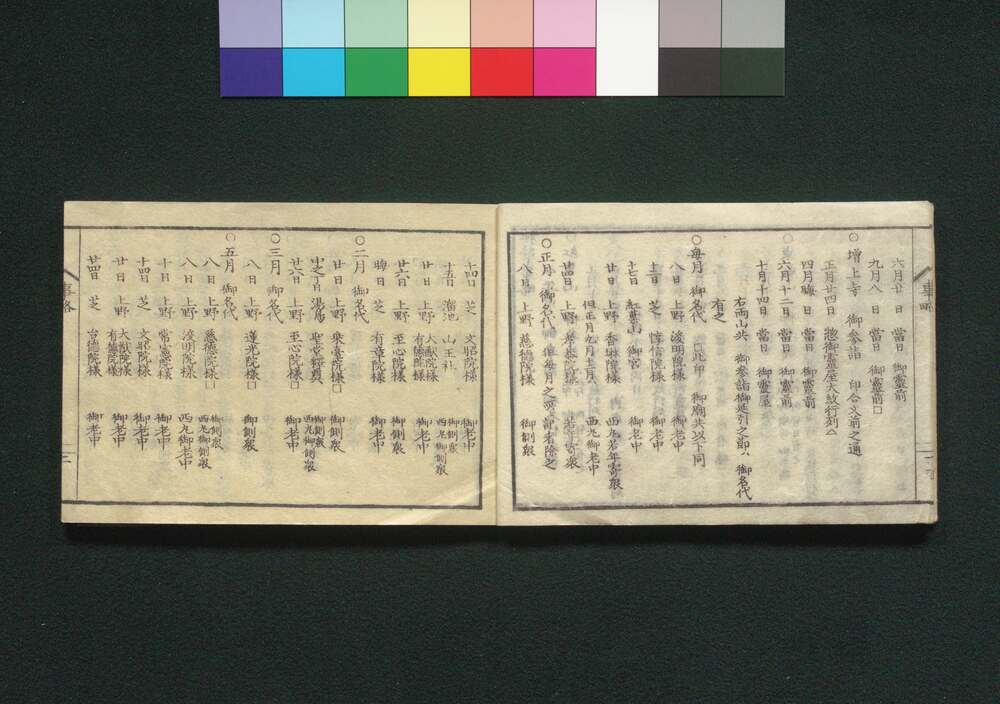 六月廿日 當日 御靈前
九月八日 當日 御靈前□
○増上寺 御参詣 印合文前之通
正月廿四日 惣御靈屋大鼓行列△
四月晦日 當日 御靈前
○六月十二日 當日 御靈前
十月十四日 當日 御靈屋
右両山共 御参詣御延引之節ハ 御名代
有之
○毎月 御名代 □此印 御廟共以下同
八日 上野 浚明院様 御老中
十二日 芝 惇信院様 御老中
十七日 紅葉山 御宮 御老中
廿日 上野 香琳院様 西丸若年寄衆
但正月九月十二月ハ 西丸御老中
廿四日 上野 孝恭院様 若年寄衆
○正月 御名代 但毎月之所記者除之
八日 上野 慈徳院様 御側衆
十四日 芝 文昭院様 御老中
十五日 溜池 山王社 御側衆 西丸御側衆
廿日 上野 大猷院様 有徳院様 御老中
廿六日 上野 至心院様 御側衆
晦日 芝 有章院様 御老中
○二月 御名代
廿日 上野 乗臺院様□ 御側衆
中之日 湯島 聖堂釋奠 御側衆 西丸御側衆
廿六日 上野 至心院様□ 御老中
○三月 御名代
八日 上野 蓮光院様□ 御側衆
○五月 御名代
八日 上野 慈徳院様□ 御側衆 西丸御側衆
八日 上野 浚明院様□ 西丸御老中
十日 上野 常憲院様 御老中
十四日 芝 文昭院様 御老中
廿日 上野 大猷院様 有徳院様 御老中
廿四日 芝 台徳院様 御老中